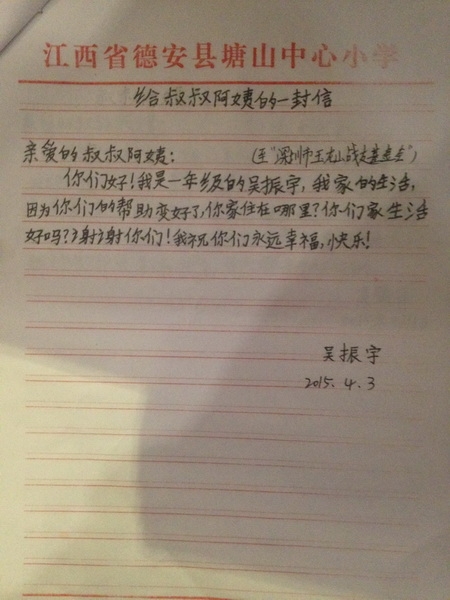 江西省德安县塘山中心小学
给叔叔阿姨的一封信
亲爱的叔叔阿姨：
你们好！我是一年级的吴振宇，我家的生活，
因为你们的帮助变好了，你家住在哪里？你们家生活
好吗？谢谢你们！我祝你们永远幸福，快乐！
吴振宇
2015.4.3